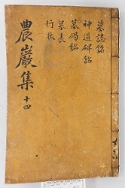 墓誌銘
神道碑銘
墓碣銘
墓表
行狀
農巖集 十四